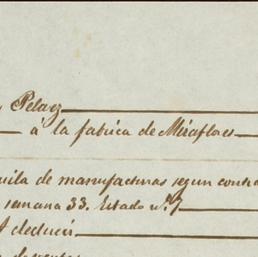 Pelaez
á la fabrica de Miraflores
de manufacturas segun
semana 33. Estado nº 7
A deducir